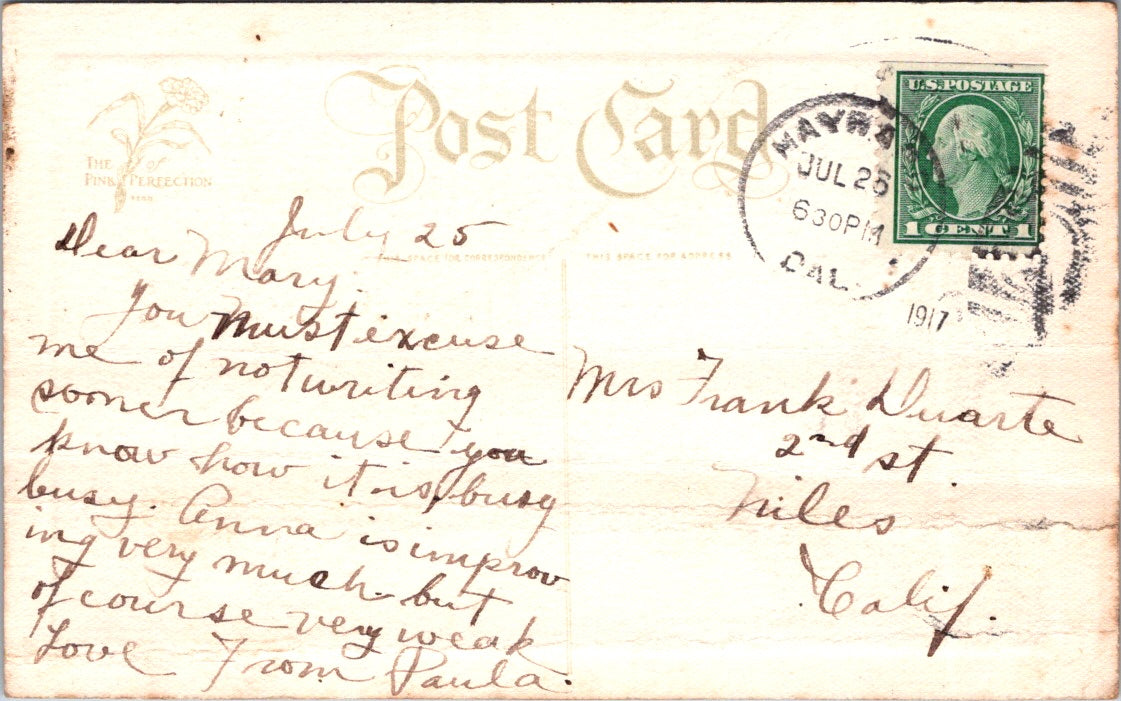 Post Card
THE of
PINK PERFECTION
U.S. POSTAGE
1 CENT 1
JUL 25
630 PM
CAL.
1917
SPACE FOR CORRESPONDENCE
THIS SPACE FOR ADDRESS
July 25
Dear Mary.
You must excuse
me of not writing
sooner because you
know how it is, busy
busy. Anna is improv
ing very much but
of course very weak
Love From Paula.
Mrs Frank Duarte
2nd st.
Niles
Calif.